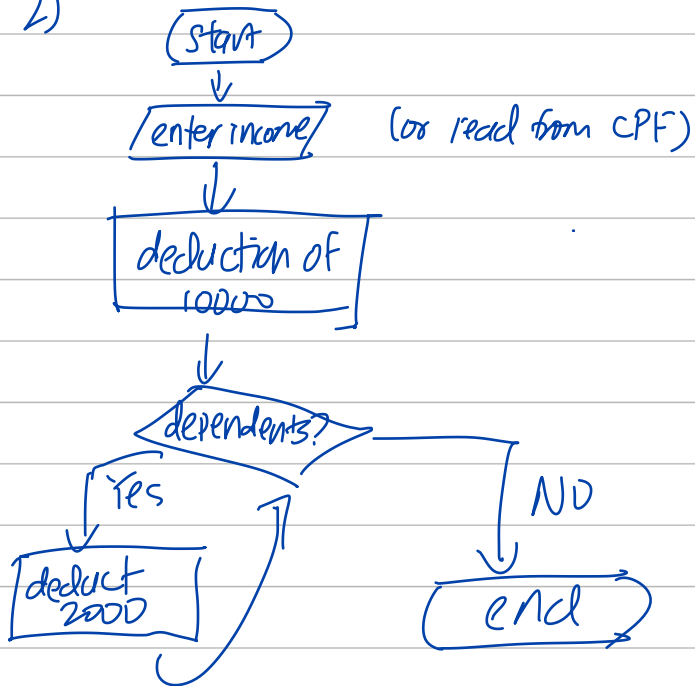 2)
start
enter income (or read from CPF)
deduction of
10000
dependents?
Yes
NO
deduct
2000
end